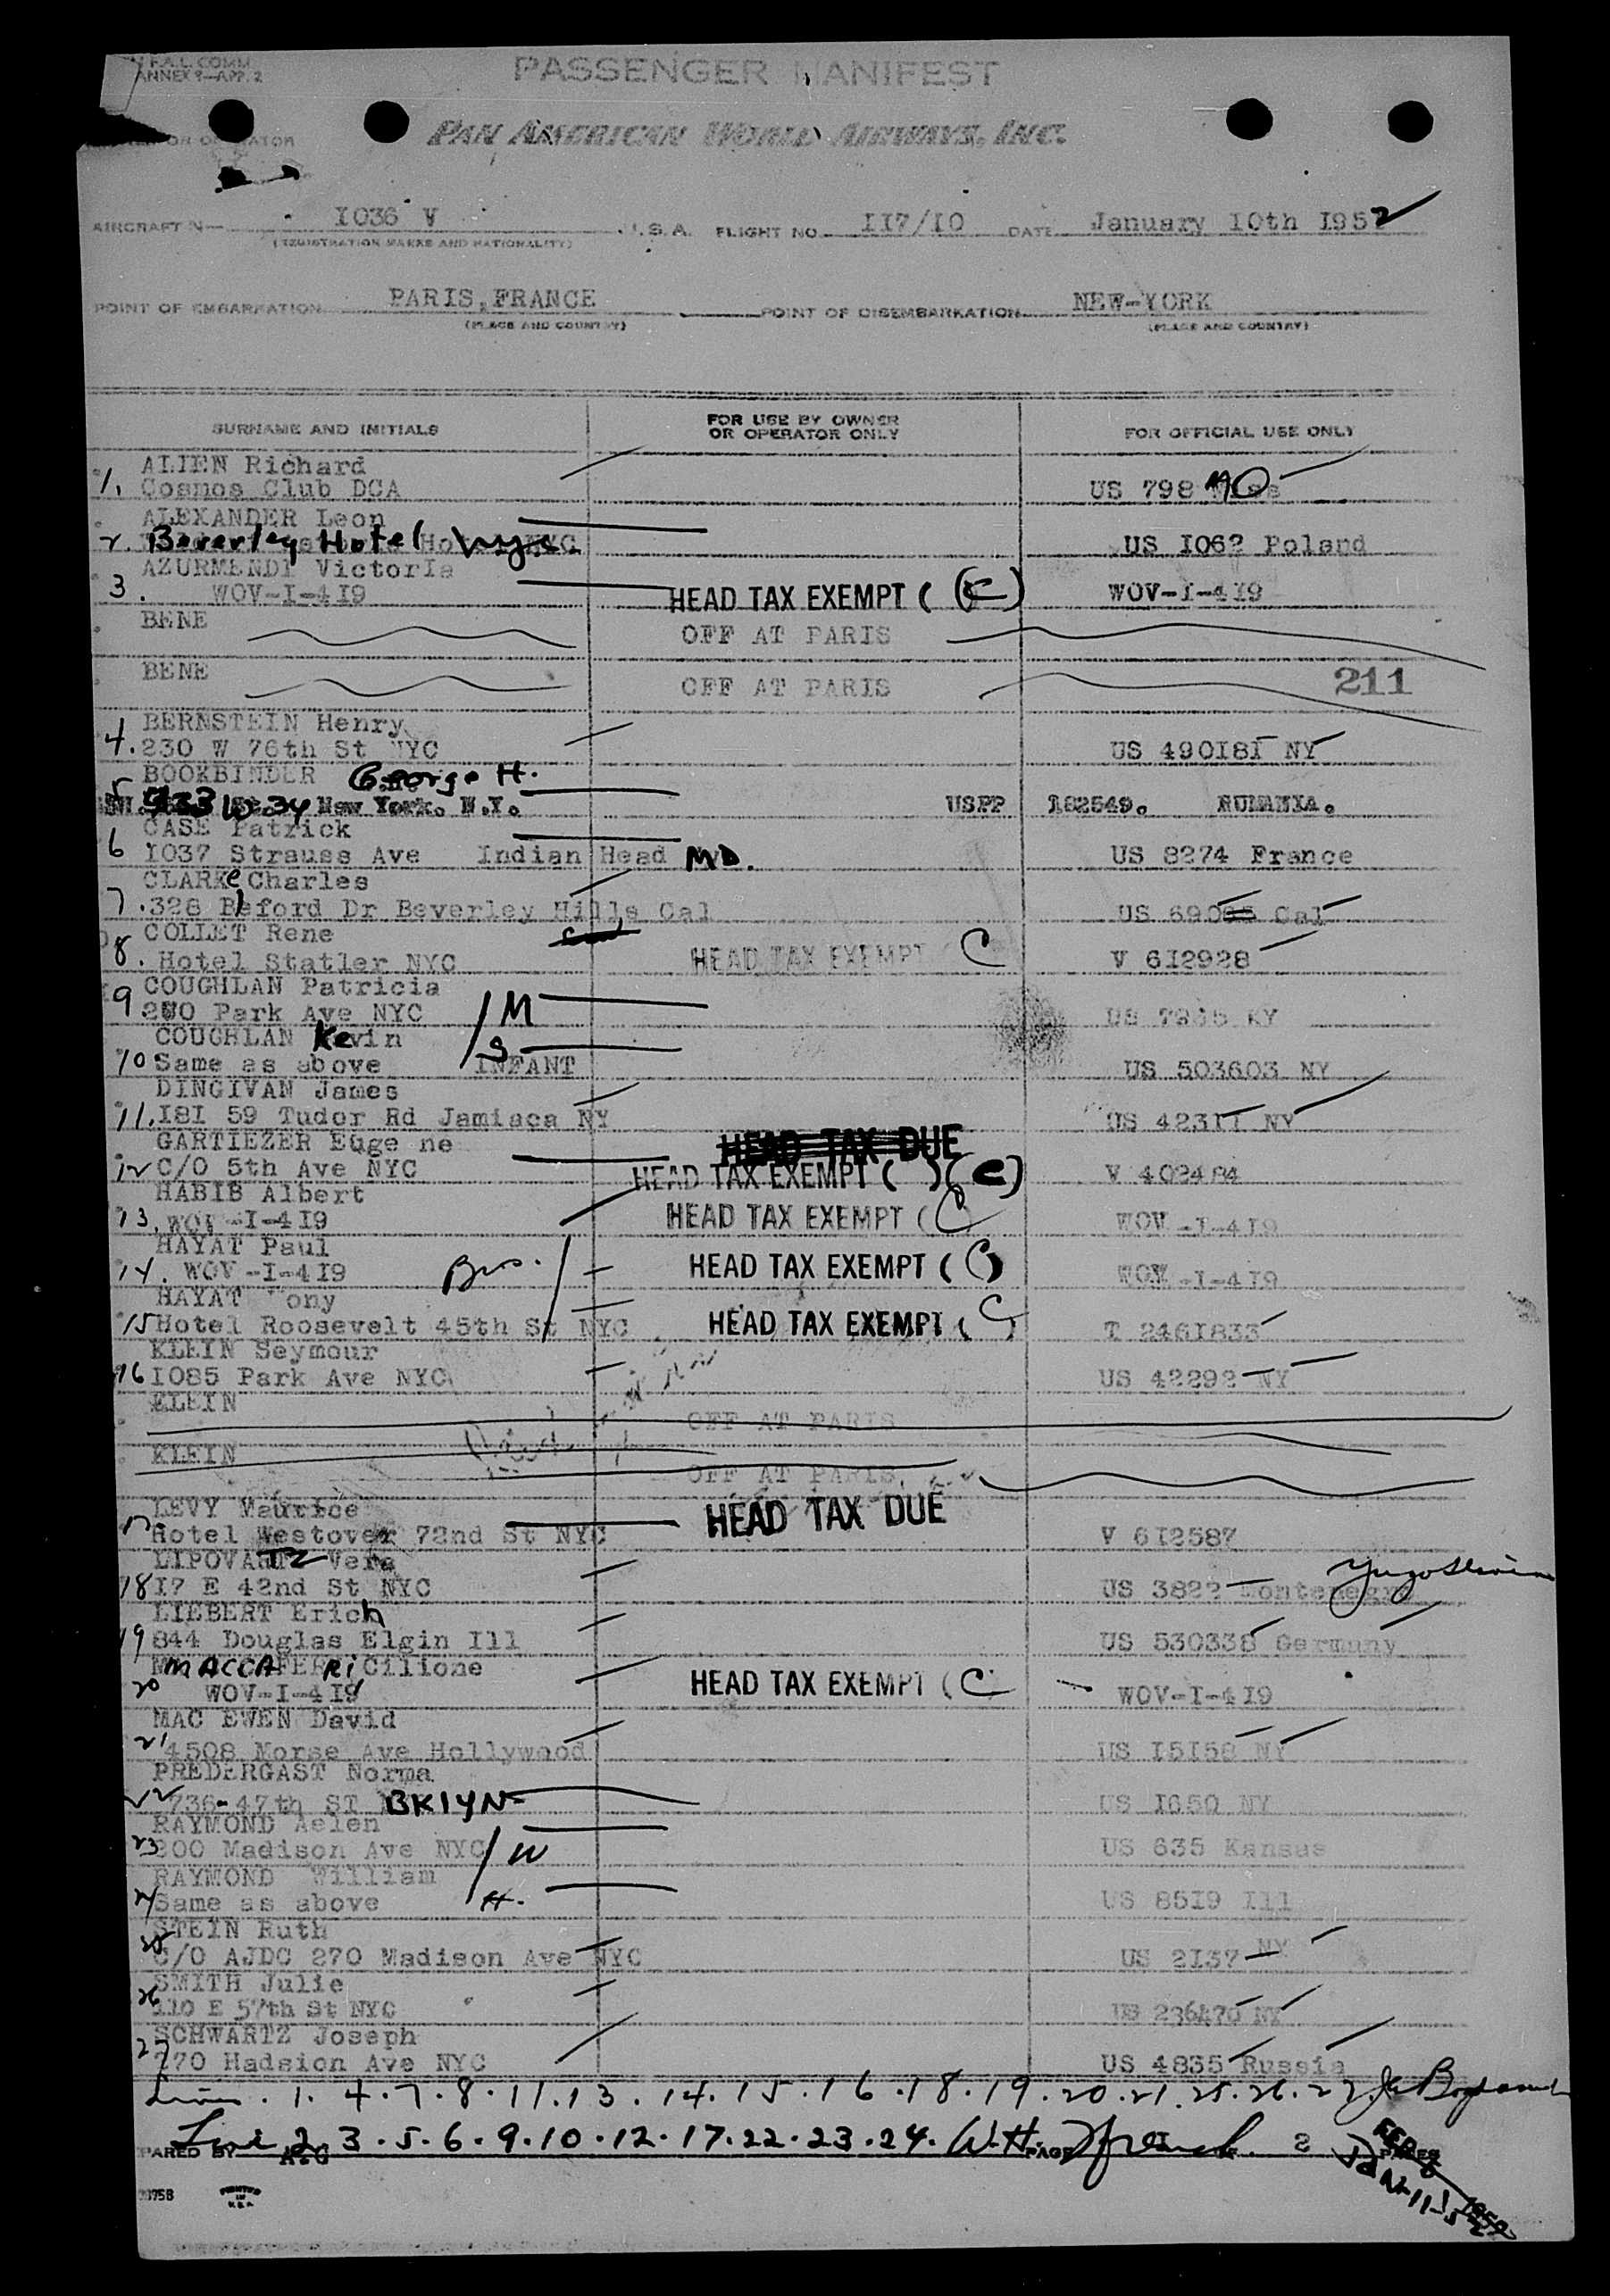 F.A.L. COMM
ANNEX 9—APP. 2
PASSENGER MANIFEST
OR OPERATOR
PAN AMERICAN WORLD AIRWAYS, INC.
AIRCRAFT N— 1036 V U.S.A. FLIGHT NO. II7/I0 DATE January 10th I952
(REGISTRATION MARKS AND NATIONALITY)
POINT OF EMBARKATION PARIS,FRANCE POINT OF DISEMBARKATION NEW-YORK
(PLACE AND COUNTRY) (PLACE AND COUNTRY)
SURNAME AND INITIALS FOR USE BY OWNER OR OPERATOR ONLY FOR OFFICIAL USE ONLY
ALLEN Richard
1. Cosmos Club DCA US 798 MO
ALEXANDER Leon
2. Beverley Hotel NYC US I062 Poland
AZURMENDI VictorIa
3. WOV-I-4I9 HEAD TAX EXEMPT (C) WOV-I-4I9
BENE OFF AT PARIS
BENE OFF AT PARIS 211
BERNSTEIN Henry
4. 230 W 76th St NYC US 490I8I NY
BOOKBINDER George H.
5 W. 34 New York. N.Y. USPP 162549. RUMANIA.
CASE Patrick
6 I037 Strauss Ave Indian Head MD. US 8274 France
CLARKe Charles
7. 328 Beford Dr Beverley Hills Cal US 690 Cal
COLLET Rene
8. Hotel Statler NYC HEAD TAX EXEMPT C V 6I2928
COUGHLAN Patricia
9 Park Ave NYC M US KY
COUGHLAN Kevin
10 Same as above INFANT S US 503603 NY
DINGIVAN James
11. I8I 59 Tudor Rd Jamiaca NY US 423II NY
GARTIEZER Euge ne HEAD TAX DUE
12 C/O 5th Ave NYC HEAD TAX EXEMPT ( )(C) V 402484
HABIB Albert
13. WOV -I-4I9 HEAD TAX EXEMPT (C WOV -I-4I9
HAYAT Paul
14. WOV -I-4I9 Bros. HEAD TAX EXEMPT (C) WOV -I-4I9
HAYAT Tony
15 Hotel Roosevelt 45th St NYC HEAD TAX EXEMPT (C) T 246I833
KLEIN Seymour
16 I085 Park Ave NYC US 42292 NY
KLEIN OFF AT PARIS
KLEIN OFF AT PARIS
LEVY Maurice
17 Hotel Westover 72nd St NYC HEAD TAX DUE V 6I2587
Vera
18 I7 E 42nd St NYC US 3822 Yugoslavia
LIEBERT Erich
19 844 Douglas Elgin Ill US 530338 Germany
MACCAFERRi Cilione
20 WOV-I-4I9 HEAD TAX EXEMPT (C WOV-I-4I9
MAC EWEN David
21 4508 Morse Ave Hollywood US I5I58 NY
PREDERGAST Norma
22 736-47th ST BKLYN US I650 NY
RAYMOND Aelen
23 Madison Ave NYC W US 635 Kansas
RAYMOND William
24 Same as above H. US 85I9 Ill
STEIN Ruth
25 C/O AJDC 270 Madison Ave NYC US 2I37 NY
SMITH Julie
26 110 E 57th St NYC US 236470 NY
SCHWARTZ Joseph
27 270 Hadsion Ave NYC US 4835 Russia
1. 4. 7. 8. 11. 13. 14. 15. 16. 18. 19. 20. 21. 25. 26. 27
Line 2. 3. 5. 6. 9. 10. 12. 17. 22. 23. 24. W.H. French
PARED BY PAGE 2 PAGES
JAN 11 1952
PRINTED IN U.S.A.